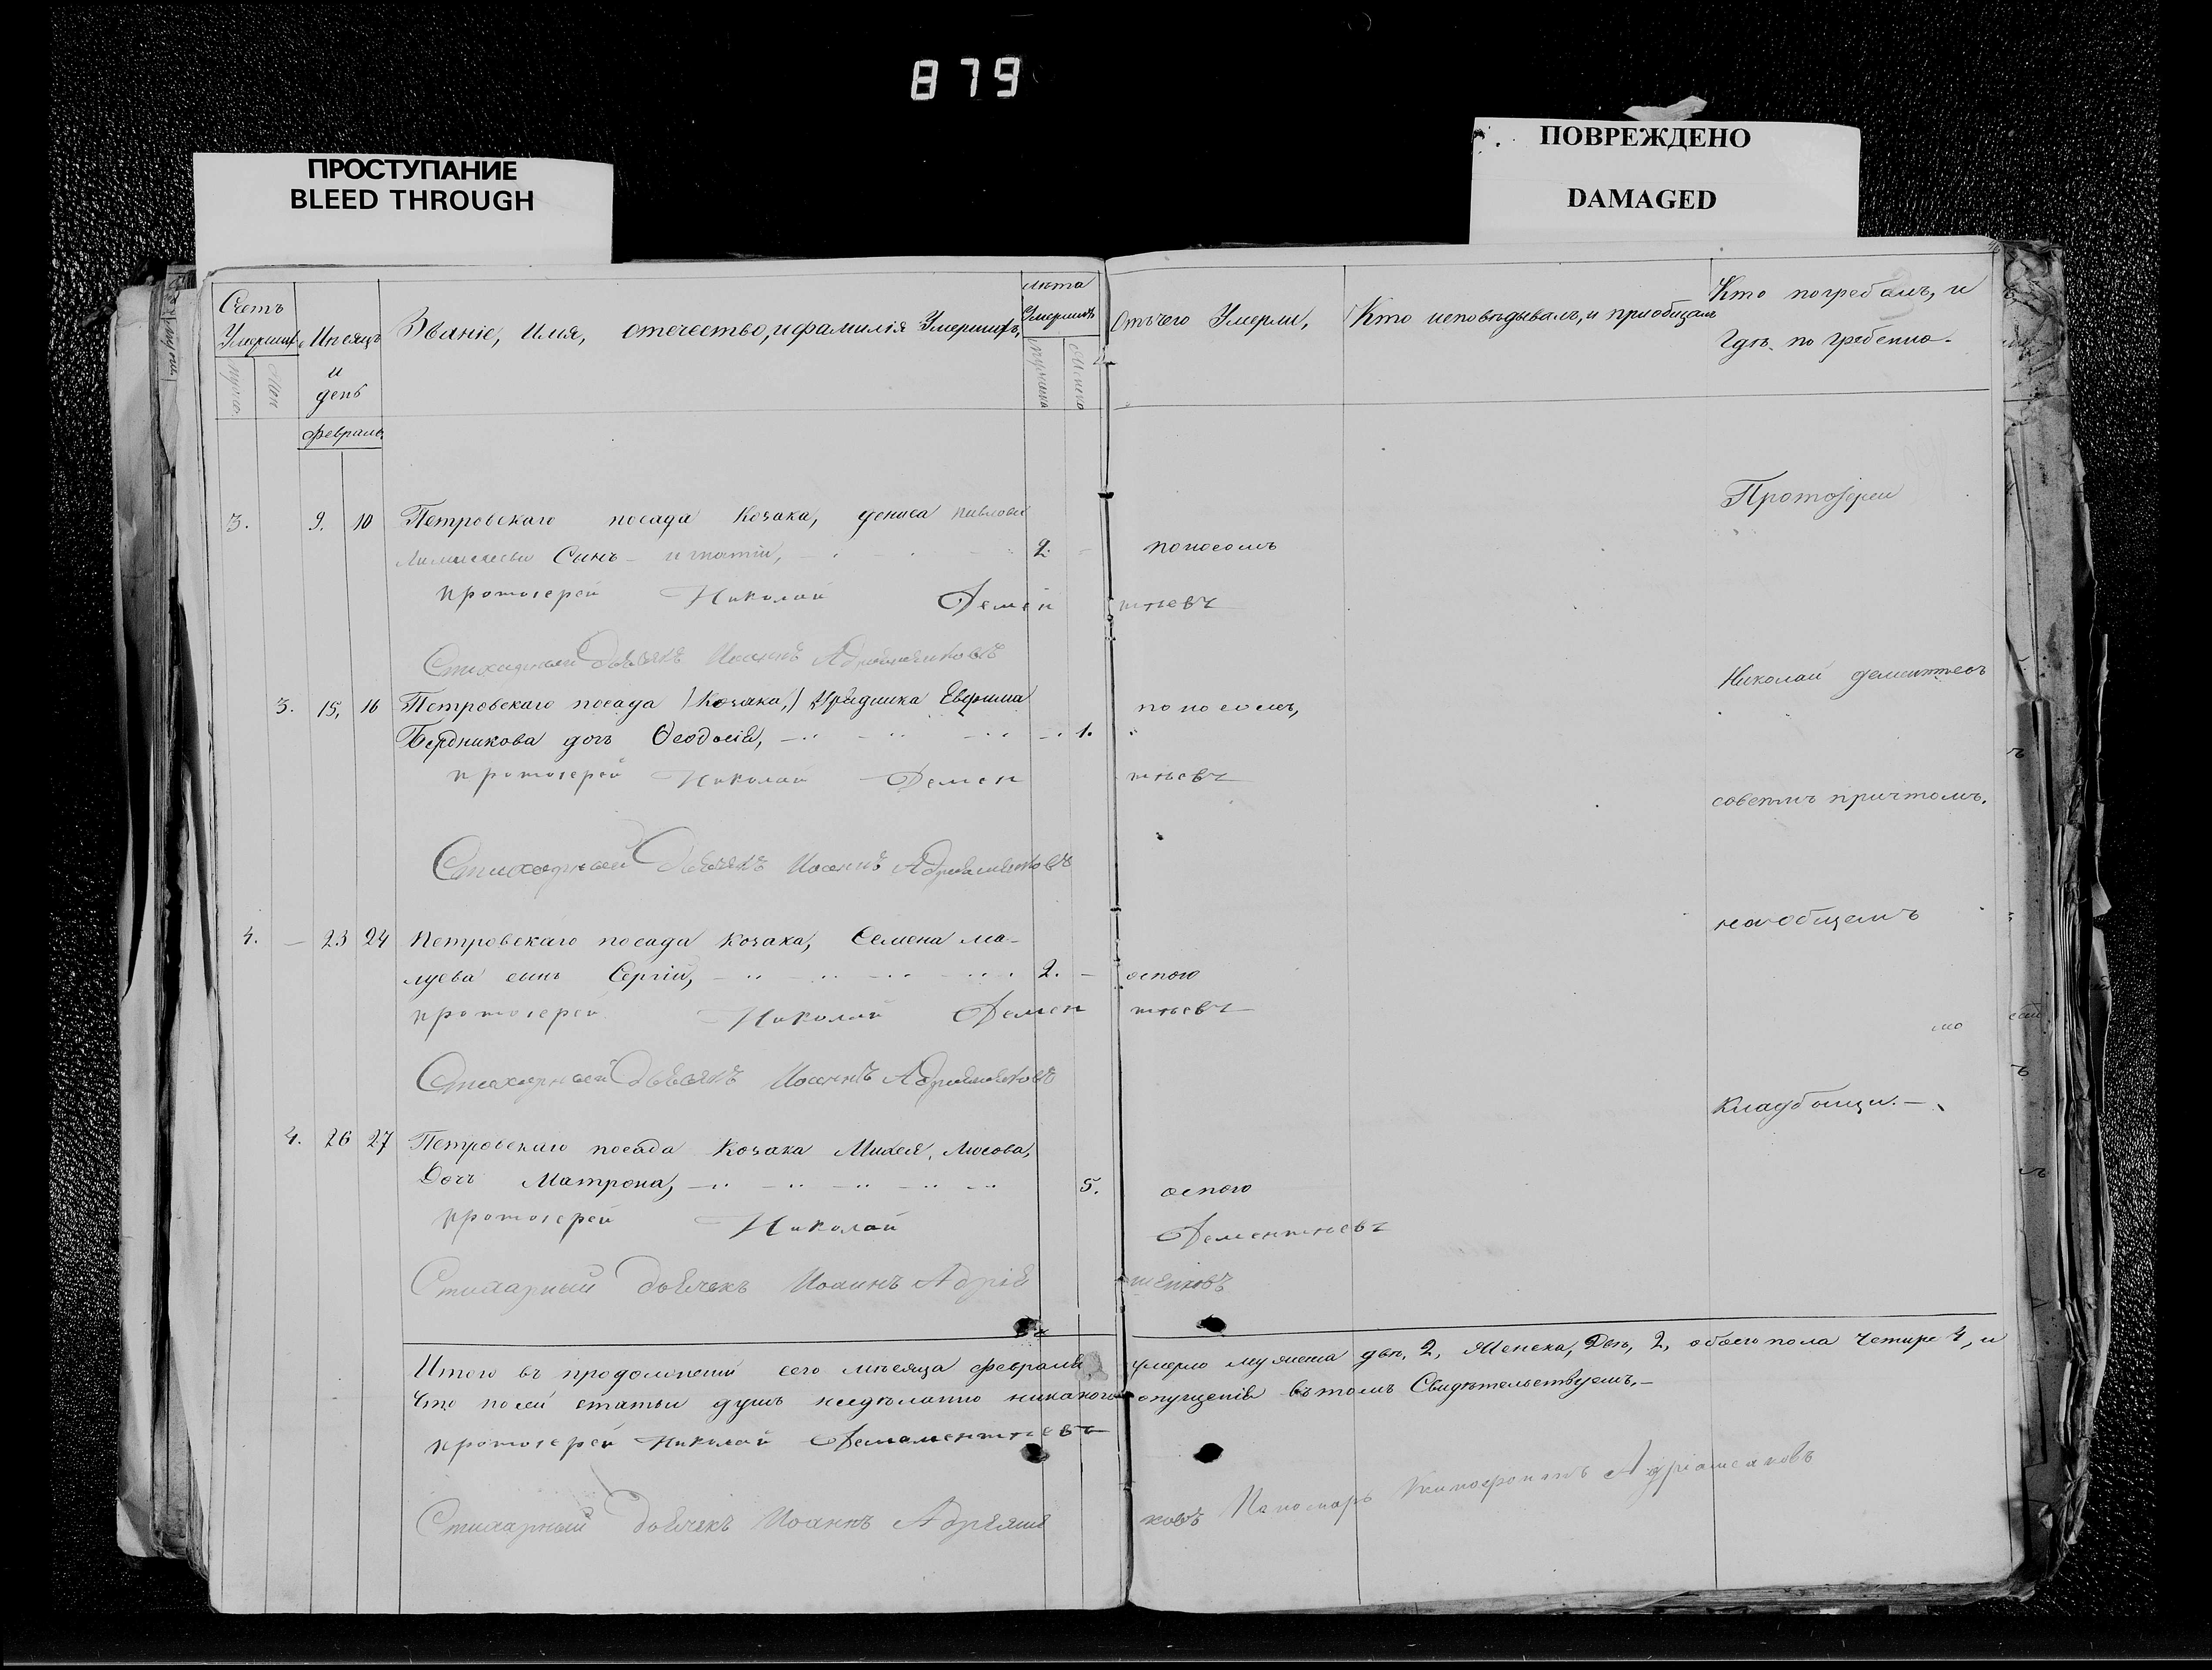 879
ПРОСТУПАНИЕ
BLEED THROUGH
ПОВРЕЖДЕНО
DAMAGED
Счетъ
Умершихъ
Мѣсяцъ
и
день
Званіе, Имя, отечество, и фамилія Умершихъ,
лѣта
Умершихъ
Отъ чего Умерли,
Кто исповѣдывалъ, и приобщалъ
Кто погребалъ, и
Гдѣ погребено.
мужс.
жен
мужска
женска
февраль
3. 9. 10 Петровскаго посада Козака, дениса павлова
Сынъ игнатій, 2. поносомъ
протоіерей Николай Дементьевъ
Стихарный Дьячекъ Иоаннъ Адріяшенковъ
3. 15, 16 Петровскаго посада (Козака,) Урядника Евфима поносомъ,
Бердникова дочь Феодосія, 1. "
протоіерей Николай Дементьевъ
Стихарный Дьячекъ Иоаннъ Адріяшенковъ
4. — 23 24 Петровскаго посада Козака, Семена ма-
луева сынъ Сергій, 2. - оспою
протоіерей Николай Дементьевъ
Стихарный Дьячекъ Иоаннъ Адріяшенковъ
4. 26 27 Петровскаго посада Козака Михея, Лосова,
Дочь Матрона, 5. оспою
протоіерей Николай Дементьевъ
Стихарный дьячекъ Иоаннъ Адріяшенковъ
Протоіерей
Николай дементьевъ
совсемъ причтомъ.
на общемъ
кладбищи.—
Итого въ продолженіи сего мѣсяца февраля умерло мужеска два, 2, Женска, Двѣ, 2, обоего пола четыре 4, и
Что по сей статьи душъ неѣдѣланно никакого опущенія въ томъ Свидѣтельствуемъ,—
протоіерей Николай Демаментьевъ
Стихарный дьячекъ Иоаннъ Адріяшенковъ
Пономарь Адріашенковъ